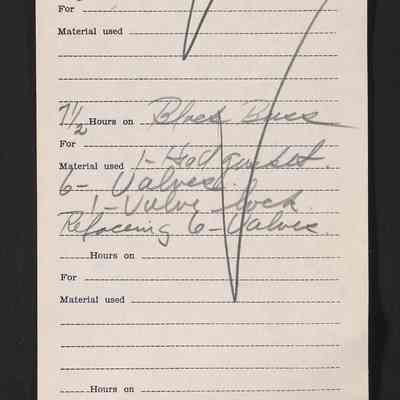 For
Material used
7 1/2 Hours on Black Buss
For
Material used 1 - Head gasket.
6 - Valves.
1 - Valve lock
Refaceing 6 - Valves.
Hours on
For
Material used
Hours on